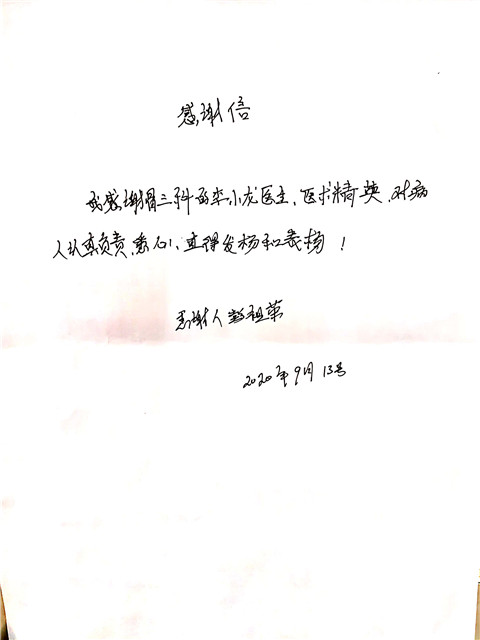 感谢信
我感谢骨三科的李小龙医生、医术精英、对病
人认真负责、悉心、直得发杨和表杨！
感谢人 赵祖荣
2020年9月13号